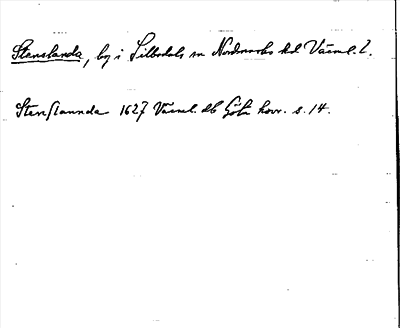 Stenslanda, by i Silbodals sn Nordmarks hd Värml. l.
Stenslannda 1627 Värml. db Göta hovr. s. 14.